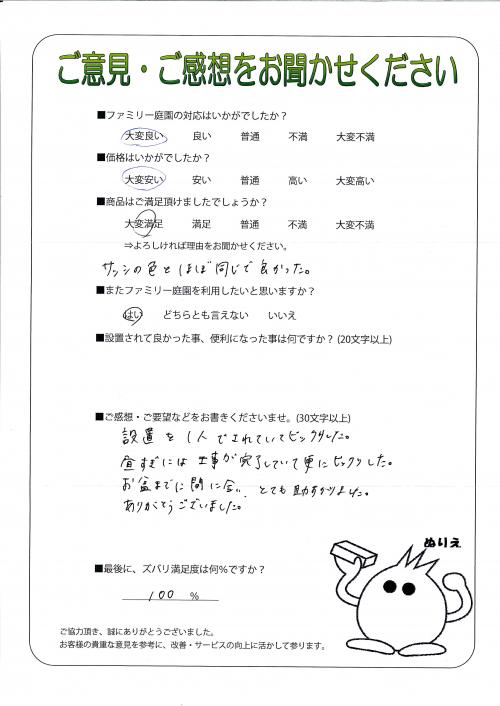 ご意見・ご感想をお聞かせください
■ファミリー庭園の対応はいかがでしたか？
大変良い 良い 普通 不満 大変不満
■価格はいかがでしたか？
大変安い 安い 普通 高い 大変高い
■商品はご満足頂けましたでしょうか？
大変満足 満足 普通 不満 大変不満
⇒よろしければ理由をお聞かせください。
サッシの色とほぼ同じで良かった。
■またファミリー庭園を利用したいと思いますか？
はい どちらとも言えない いいえ
■設置されて良かった事、便利になった事は何ですか？(20文字以上)
■ご感想・ご要望などをお書きくださいませ。(30文字以上)
設置を1人でされていてビックリした。
昼すぎには工事が完了していて更にビックリした。
お盆までに間に合い、とても助かりました。
ありがとうございました。
ぬりえ
■最後に、ズバリ満足度は何％ですか？
100 ％
ご協力頂き、誠にありがとうございました。
お客様の貴重な意見を参考に、改善・サービスの向上に活かして参ります。